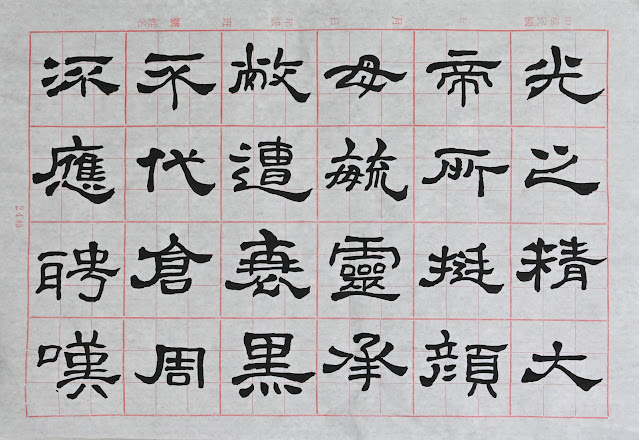 光之精大
帝所挺顏
母毓靈承
敝遭衰黑
不代倉周
流應聘嘆